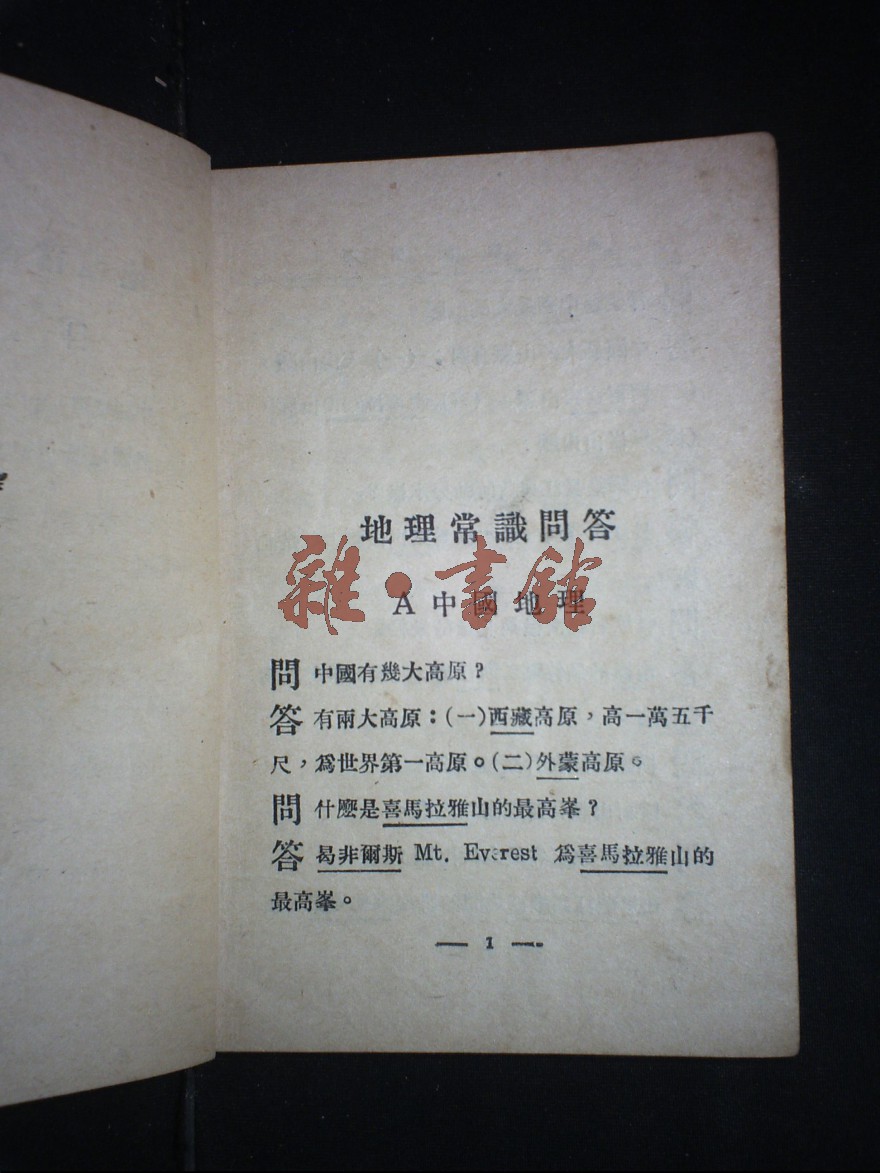 地理常識問答
雜·書館
A 中國地理
問 中國有幾大高原？
答 有兩大高原：(一)西藏高原，高一萬五千
尺，爲世界第一高原。(二)外蒙高原。
問 什麼是喜馬拉雅山的最高峯？
答 曷非爾斯 Mt. Everest 爲喜馬拉雅山的
最高峯。
— 1 —